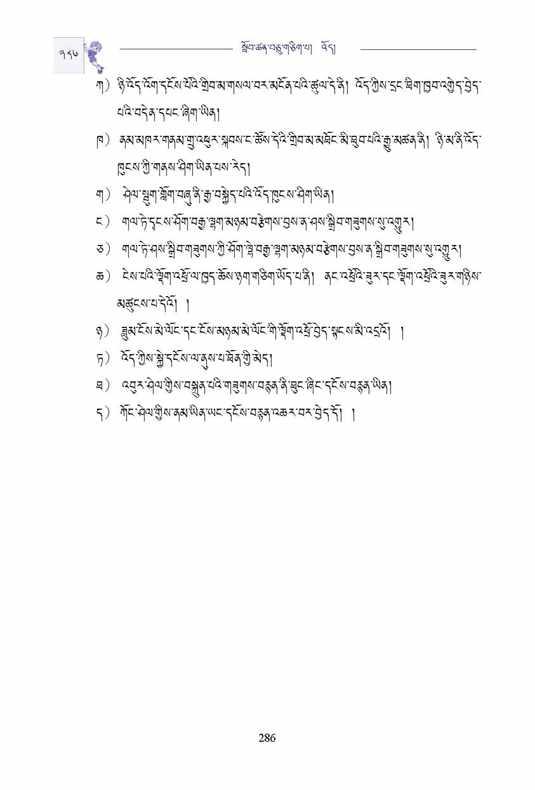 ༢༨༦
སློབ་ཚན་བཅུ་གཅིག་པ། འོད།
ཀ) ཉི་འོད་འོག་དངོས་པོའི་གྲིབ་མ་གསལ་བར་མངོན་པའི་ཚུལ་དེ་ནི། འོད་ཀྱིས་དྲང་ཐིག་ཁྱབ་འགྲེད་བྱེད་
པའི་བདེན་དཔང་ཞིག་ཡིན།
ཁ) ནམ་མཁར་གནམ་གྲུ་འཕུར་སྐབས་ང་ཚོས་དེའི་གྲིབ་མ་མཐོང་མི་ཐུབ་པའི་རྒྱུ་མཚན་ནི། ཉི་མ་ནི་འོད་
ཁུངས་ཀྱི་གནས་ཤིག་ཡིན་པས་རེད།
ག) ཤེལ་སྦུག་གློག་བཞུ་ནི་རྒྱ་བསྐྱེད་པའི་འོད་ཁུངས་ཤིག་ཡིན།
ང) གལ་ཏེ་དྭངས་ཤོག་བརྒྱ་ལྷག་མཉམ་བརྩེགས་བྱས་ན་ཤས་སྒྲིབ་གཟུགས་སུ་འགྱུར།
ཅ) གལ་ཏེ་ཤས་སྒྲིབ་གཟུགས་ཀྱི་ཤོག་ལྷེ་བརྒྱ་ལྷག་མཉམ་བརྩེགས་བྱས་ན་སྒྲིབ་གཟུགས་སུ་འགྱུར།
ཆ) ངེས་པའི་ལྡོག་འཕྲོ་ལ་ཁྱད་ཆོས་ཉག་གཅིག་ཡོད་པ་ནི། ནང་འཕྲོའི་ཟུར་དང་ལྡོག་འཕྲོའི་ཟུར་གཉིས་
མཚུངས་པ་དེའོ། །
ཉ) ཟླུམ་ངོས་མེ་ལོང་དང་ངོས་མཉམ་མེ་ལོང་གི་ལྡོག་འཕྲོ་བྱེད་སྟངས་མི་འདྲའོ། །
ཏ) འོད་ཀྱིས་སྐྱེ་དངོས་ལ་ནུས་པ་ཐོན་གྱི་མེད།
ཐ) འབུར་ཤེལ་གྱིས་བསྐྲུན་པའི་གཟུགས་བརྙན་ནི་ཆུང་ཞིང་དངོས་བརྙན་ཡིན།
ད) ཀོང་ཤེལ་གྱིས་ནམ་ཡིན་ཡང་དངོས་བརྙན་འཆར་བར་བྱེད་དོ། །
286